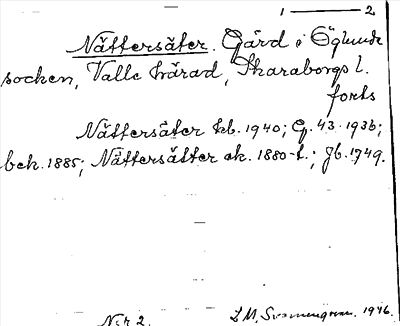 1 — 2
Nättersäter. Gård i Öglunda
socken, Valle härad, Skaraborgs l.
forts
Nättersäter kb. 1940; G. 43. 1936;
bek. 1885; Nättersätter ak. 1880-t.; Jb. 1749.
N:r 2.
1946.